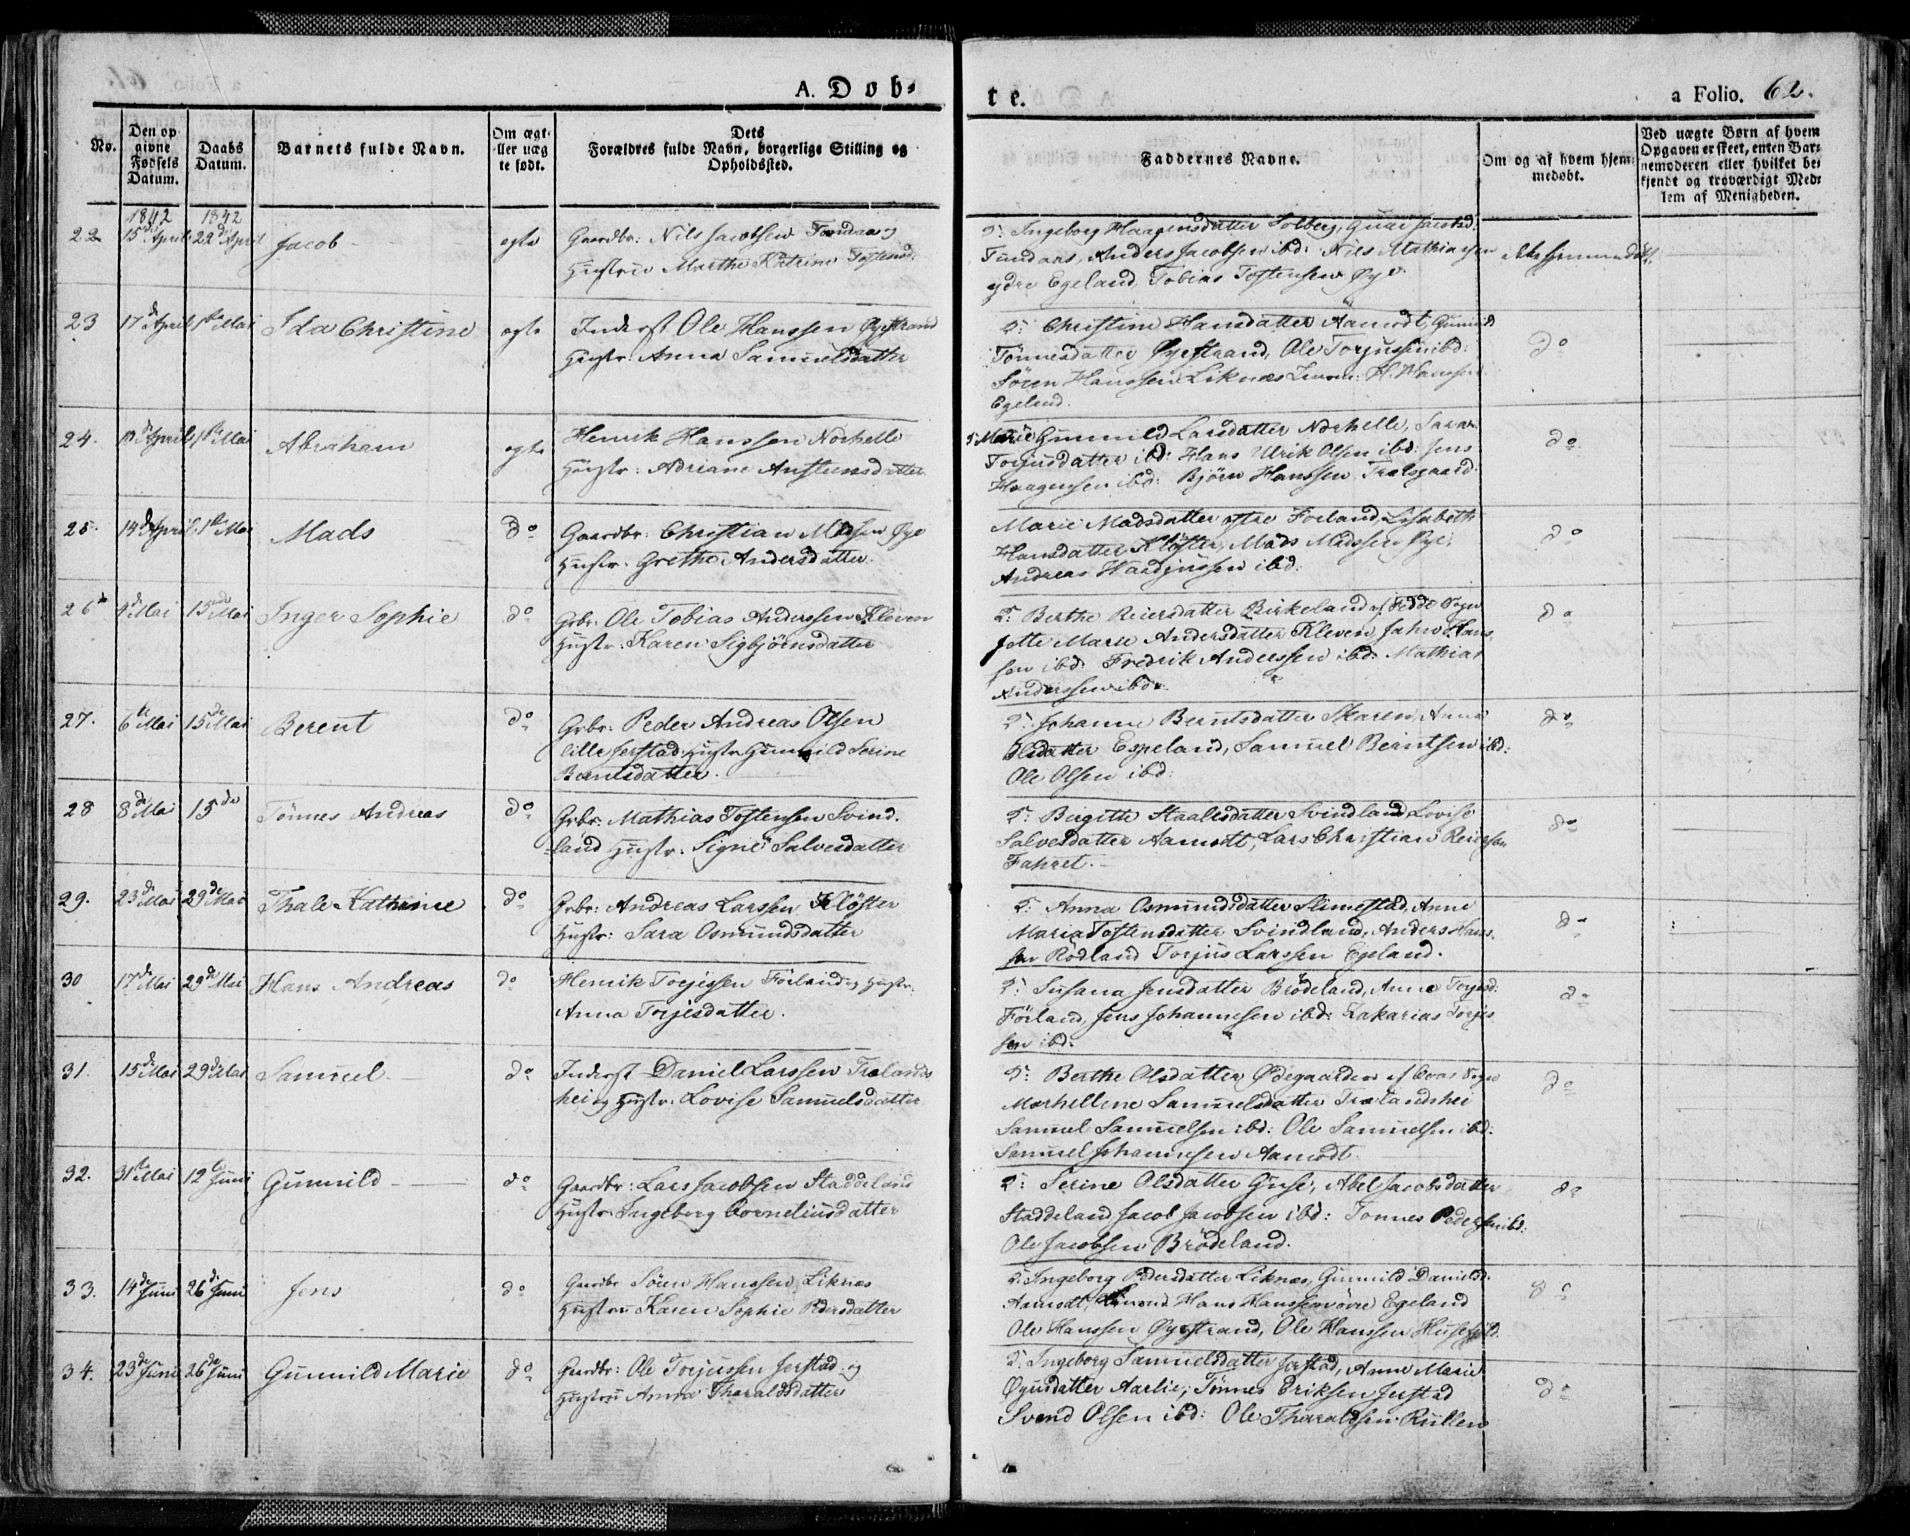 A. Døb-
te.
a Folio. 62.
No.
Den op
givne
Fødsels
Datum.
Daabs
Datum.
Barnets fulde Navn.
Om ægt-
eller uæg
te født.
Dets
Forældres fulde Navn, borgerlige Stilling og
Opholdssted.
Faddernes Navne.
Om og af hvem hjem-
medøbt.
Ved uægte Børn af hvem
Opgaven er skeet, enten Bar-
nemoderen eller hvilket be-
kjendt og troværdigt Med-
lem af Menigheden.
1842 1842
22 15d April 22d April Jacob egte
Gaardbr: Nils Jacobsen og
Hustrue Marthe Katrine
F: Ingeborg Haagensdatter Solberg,
Anders Jacobsen ibd: Nils Mathiassen
ydre Egeland, Tobias Tostensen Øye
ikke hjemmedøbt.
23 17d April 1ste Mai Ida Christine egte
Inderst Ole Hanssen Øyestrand
Hustr. Anna Samuelsdatter
F: Christine Hansdatter Aamodt, Gunild
Tönnesdatter Øyestrand, Ole Torjusen ibd:
Sören Hanssen Liknæs H. Hanssen
Egeland.
do
24. April 1ste Mai Abraham egte
Henrik Hanssen Norhelle
Hustr: Adriane Austensdatter
F: Marie Gunnild Larsdatter Norhelle, Sara
Torjusdatter ibd: Hans Ulrik Olsen ibd: Jens
Haagensen ibd: Björn Hanssen Trælsgaard
do
25. 14d April 1ste Mai Mads do
Gaardbr: Christian Madsen Øye
Hustr. Grethe Andersdatter.
Marie Madsdatter ytre Forland, Lisabeth
Hansdatter Klöster, Mads Madssen Øye,
Andreas ibd:
do
26 4d Mai 15de Mai Inger Sophie do
Grbr: Ole Tobias Anderssen Kleven
Hustr: Karen Sigbjörnsdatter
F: Berthe Reiersdatter Birkeland af Fedde Sogn
Jotte Marie Andersdatter Kleven, Jahn Hans
sen ibd: Fredrik Anderssen ibd: Mathias
Anderssen ibd:
do
27. 6te Mai 15de Mai Berent do
Grbr: Peder Andreas Olsen
lille Jerstad, Hustr Gunnild Serine
Berntsdatter.
F: Johanne Berntsdatter Skaren, Anna
Olsdatter Espeland, Samuel Berntsen ibd:
Ole Olsen ibd:
do
28 8de Mai 15de Tönnes Andreas do
Grbr: Mathias Tostensen Svind-
land Hustr. Signe Salvesdatter
F: Birgitte Staalesdatter Svindland, Lovise
Salvesdatter Aamodt, Lars Christian Reiersen
Fahret.
do
29. 23de Mai 29de Mai Thale Kathrine do
Grbr: Andreas Larssen Klöster
Hustr: Sara Osmundsdatter
F: Anna Osmundsdatter Slimestad, Anne
Maria Tostensdatter Svindland, Anders Hans-
sen Rødland Torjus Larssen Egeland.
do
30 17de Mai 29de Mai Hans Andreas do
Henrik Torjessen Förland og Hustr:
Anna Torjesdatter.
F: Susana Jensdatter Brödeland, Anne Torjesd:
Förland, Jens Johannesen ibd: Zakarias Torjes
sen ibd:
do
31. 15de Mai 29de Mai Samuel do
Inderst Daniel Larssen Trælands
hei og Hustr. Lovise Samuelsdatter
F: Berthe Olsdatter Ødegaarden af Qvas Sogn
Marhellene Samuelsdatter Trælandshei
Samuel Samuelsen ibd: Ole Samuelsen ibd:
Samuel Johannesen Aamodt
do
32. 31te Mai 12te Juni Gunnild do
Gaardbr: Lars Jacobsen Staddeland
Hustr. Ingeborg Corneliusdatter
F: Serine Olsdatter Guse, Abel Jacobsdatter
Staddeland Jacob Jacobsen ibd: Tonnes Pedersen ibd:
Ole Jacobsen Brödeland.
do
33. 14de Juni 26de Juni Jens do
Gaardbr Sören Hanssen Liknæs
Hustrue Karen Sophie Pedersdatter
F: Ingeborg Pedersdatter Liknæs, Gunnild Danielsd.
Aamodt, Hans Hanssen övre Egeland
Ole Hanssen Øyestrand, Ole Hanssen
do
34. 23de Juni 26de Juni Gunnild Marie do
Gaardbr: Ole Torjussen Jerstad og
Hustrue Anna Tharaldsdatter
F: Ingeborg Samuelsdatter Jerstad, Anne Marie
Øyusdatter Aarlie, Tönnes Eriksen Jerstad
Svend Olsen ibd: Ole Tharaldsen Rullen
do